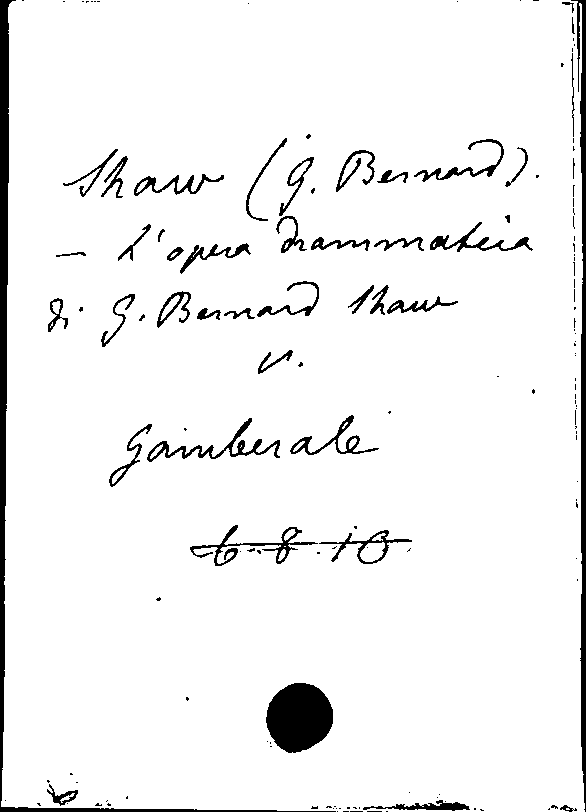 Shaw (G. Bernard).
— L'opera drammatica
di G. Bernard Shaw
v.
Gamberale
6.8.10